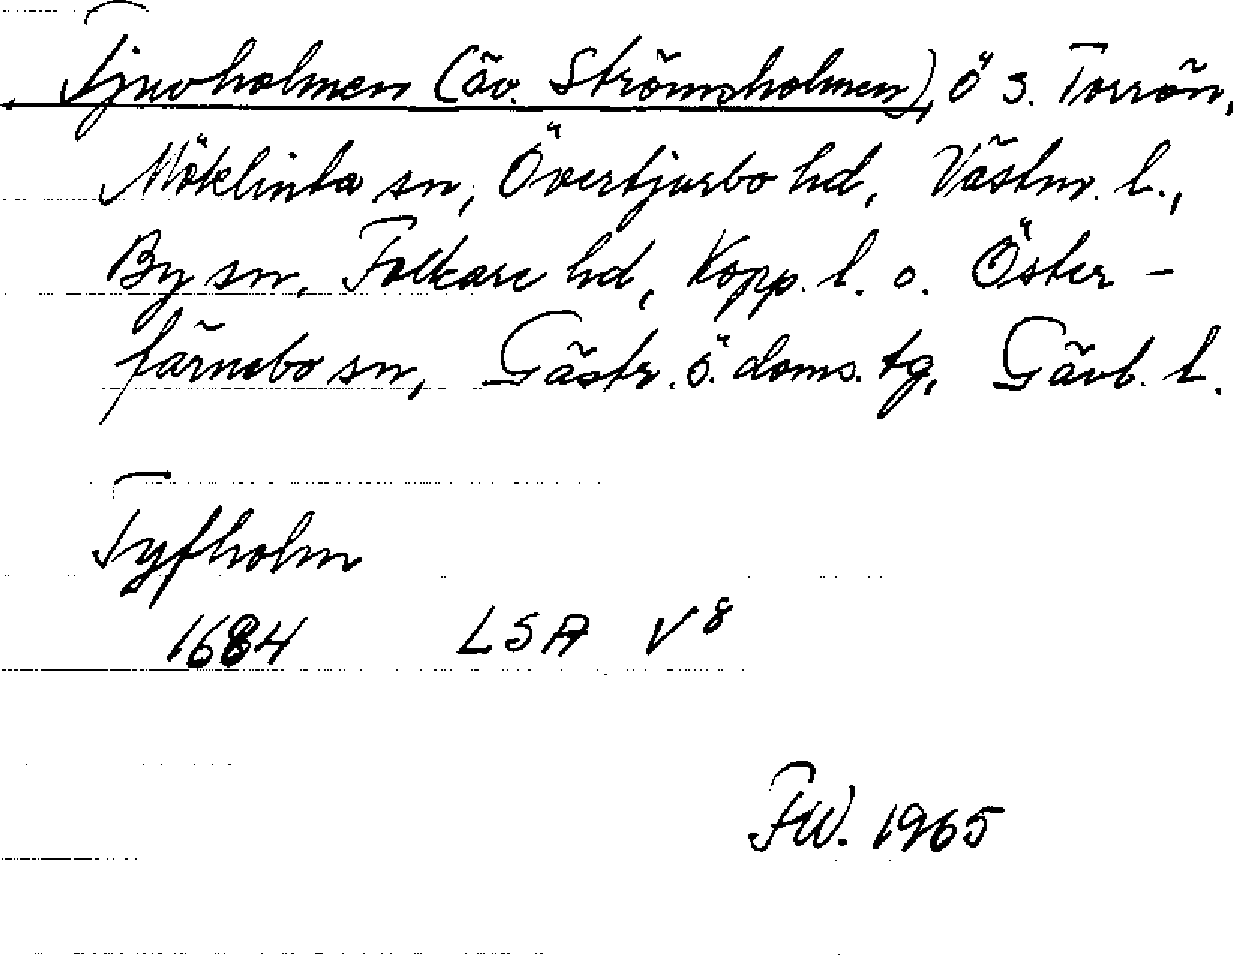 Tjuvholmen (äv. Strömsholmen), ö s. Torrön,
Möklinta sn, Övertjurbo hd, Västm. l.,
By sn, Folkare hd, Kopp. l. o. Öster-
färnebo sn, Gästr. ö. doms. tg, Gävl. l.
Tyfholm
1684 LSA V 8
FW. 1965